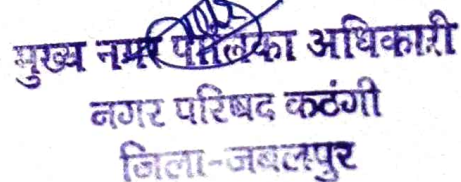 मुख्य नगर पालिका अधिकारी
नगर परिषद कटंगी
जिला-जबलपुर